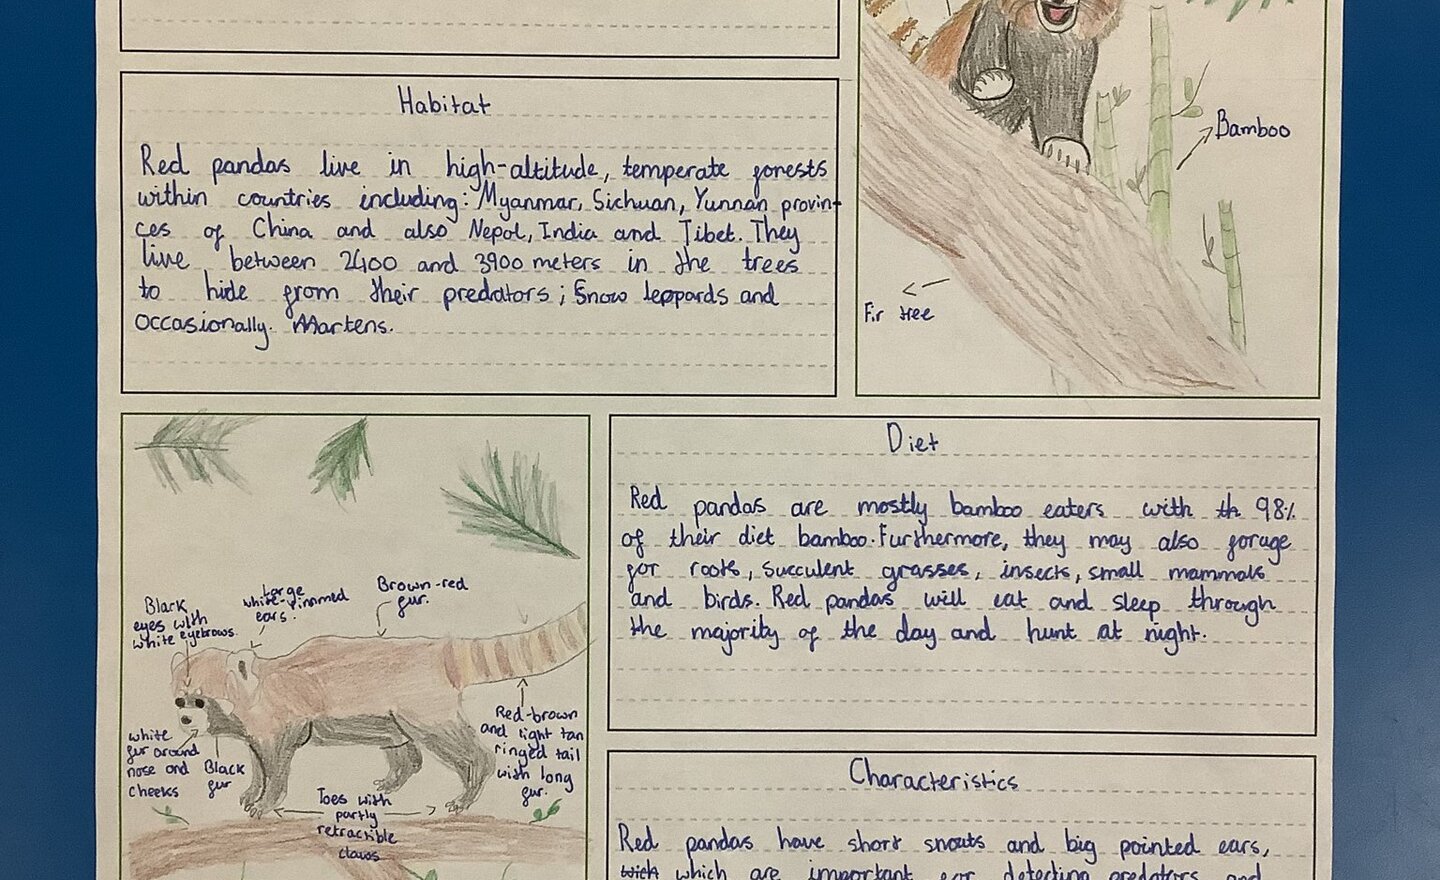 Habitat
Red pandas live in high-altitude, temperate forests
within countries including: Myanmar, Sichuan, Yunnan provin-
ces of China and also Nepal, India and Tibet. They
live between 2400 and 3900 meters in the trees
to hide from their predators; Snow leppards and
occasionally. Martens.
Bamboo
Fir tree
Black
eyes with
white eyebrows.
Large
white-rimmed
ears.
Brown-red
fur.
white
fur around
nose and
cheeks
Black
fur
Toes with
partly
retractible
claws
Red-brown
and light tan
ringed tail
with long
fur.
Diet
Red pandas are mostly bamboo eaters with th 98%
of their diet bamboo. Furthermore, they may also forage
for roots, succulent grasses, insects, small mammals
and birds. Red pandas will eat and sleep through
the majority of the day and hunt at night.
Characteristics
Red pandas have short snouts and big pointed ears,
wich which are important for detecting predators and